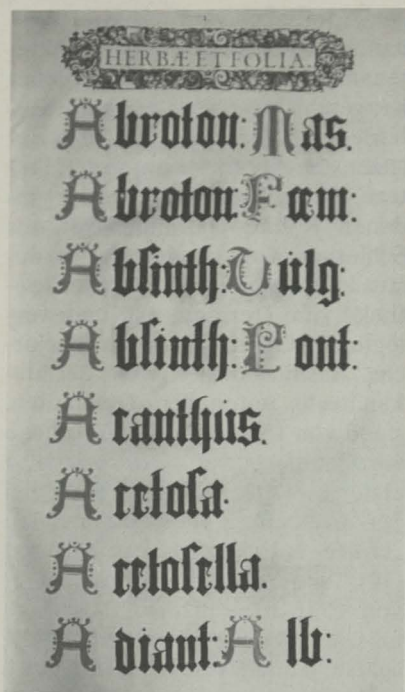 HERBÆ ET FOLIA.
Abroton: Mas.
Abroton: Fœm:
Absinth: Vulg:
Absinth: Pont:
Acanthus.
Acetosa.
Acetosella.
Adiant: Alb: